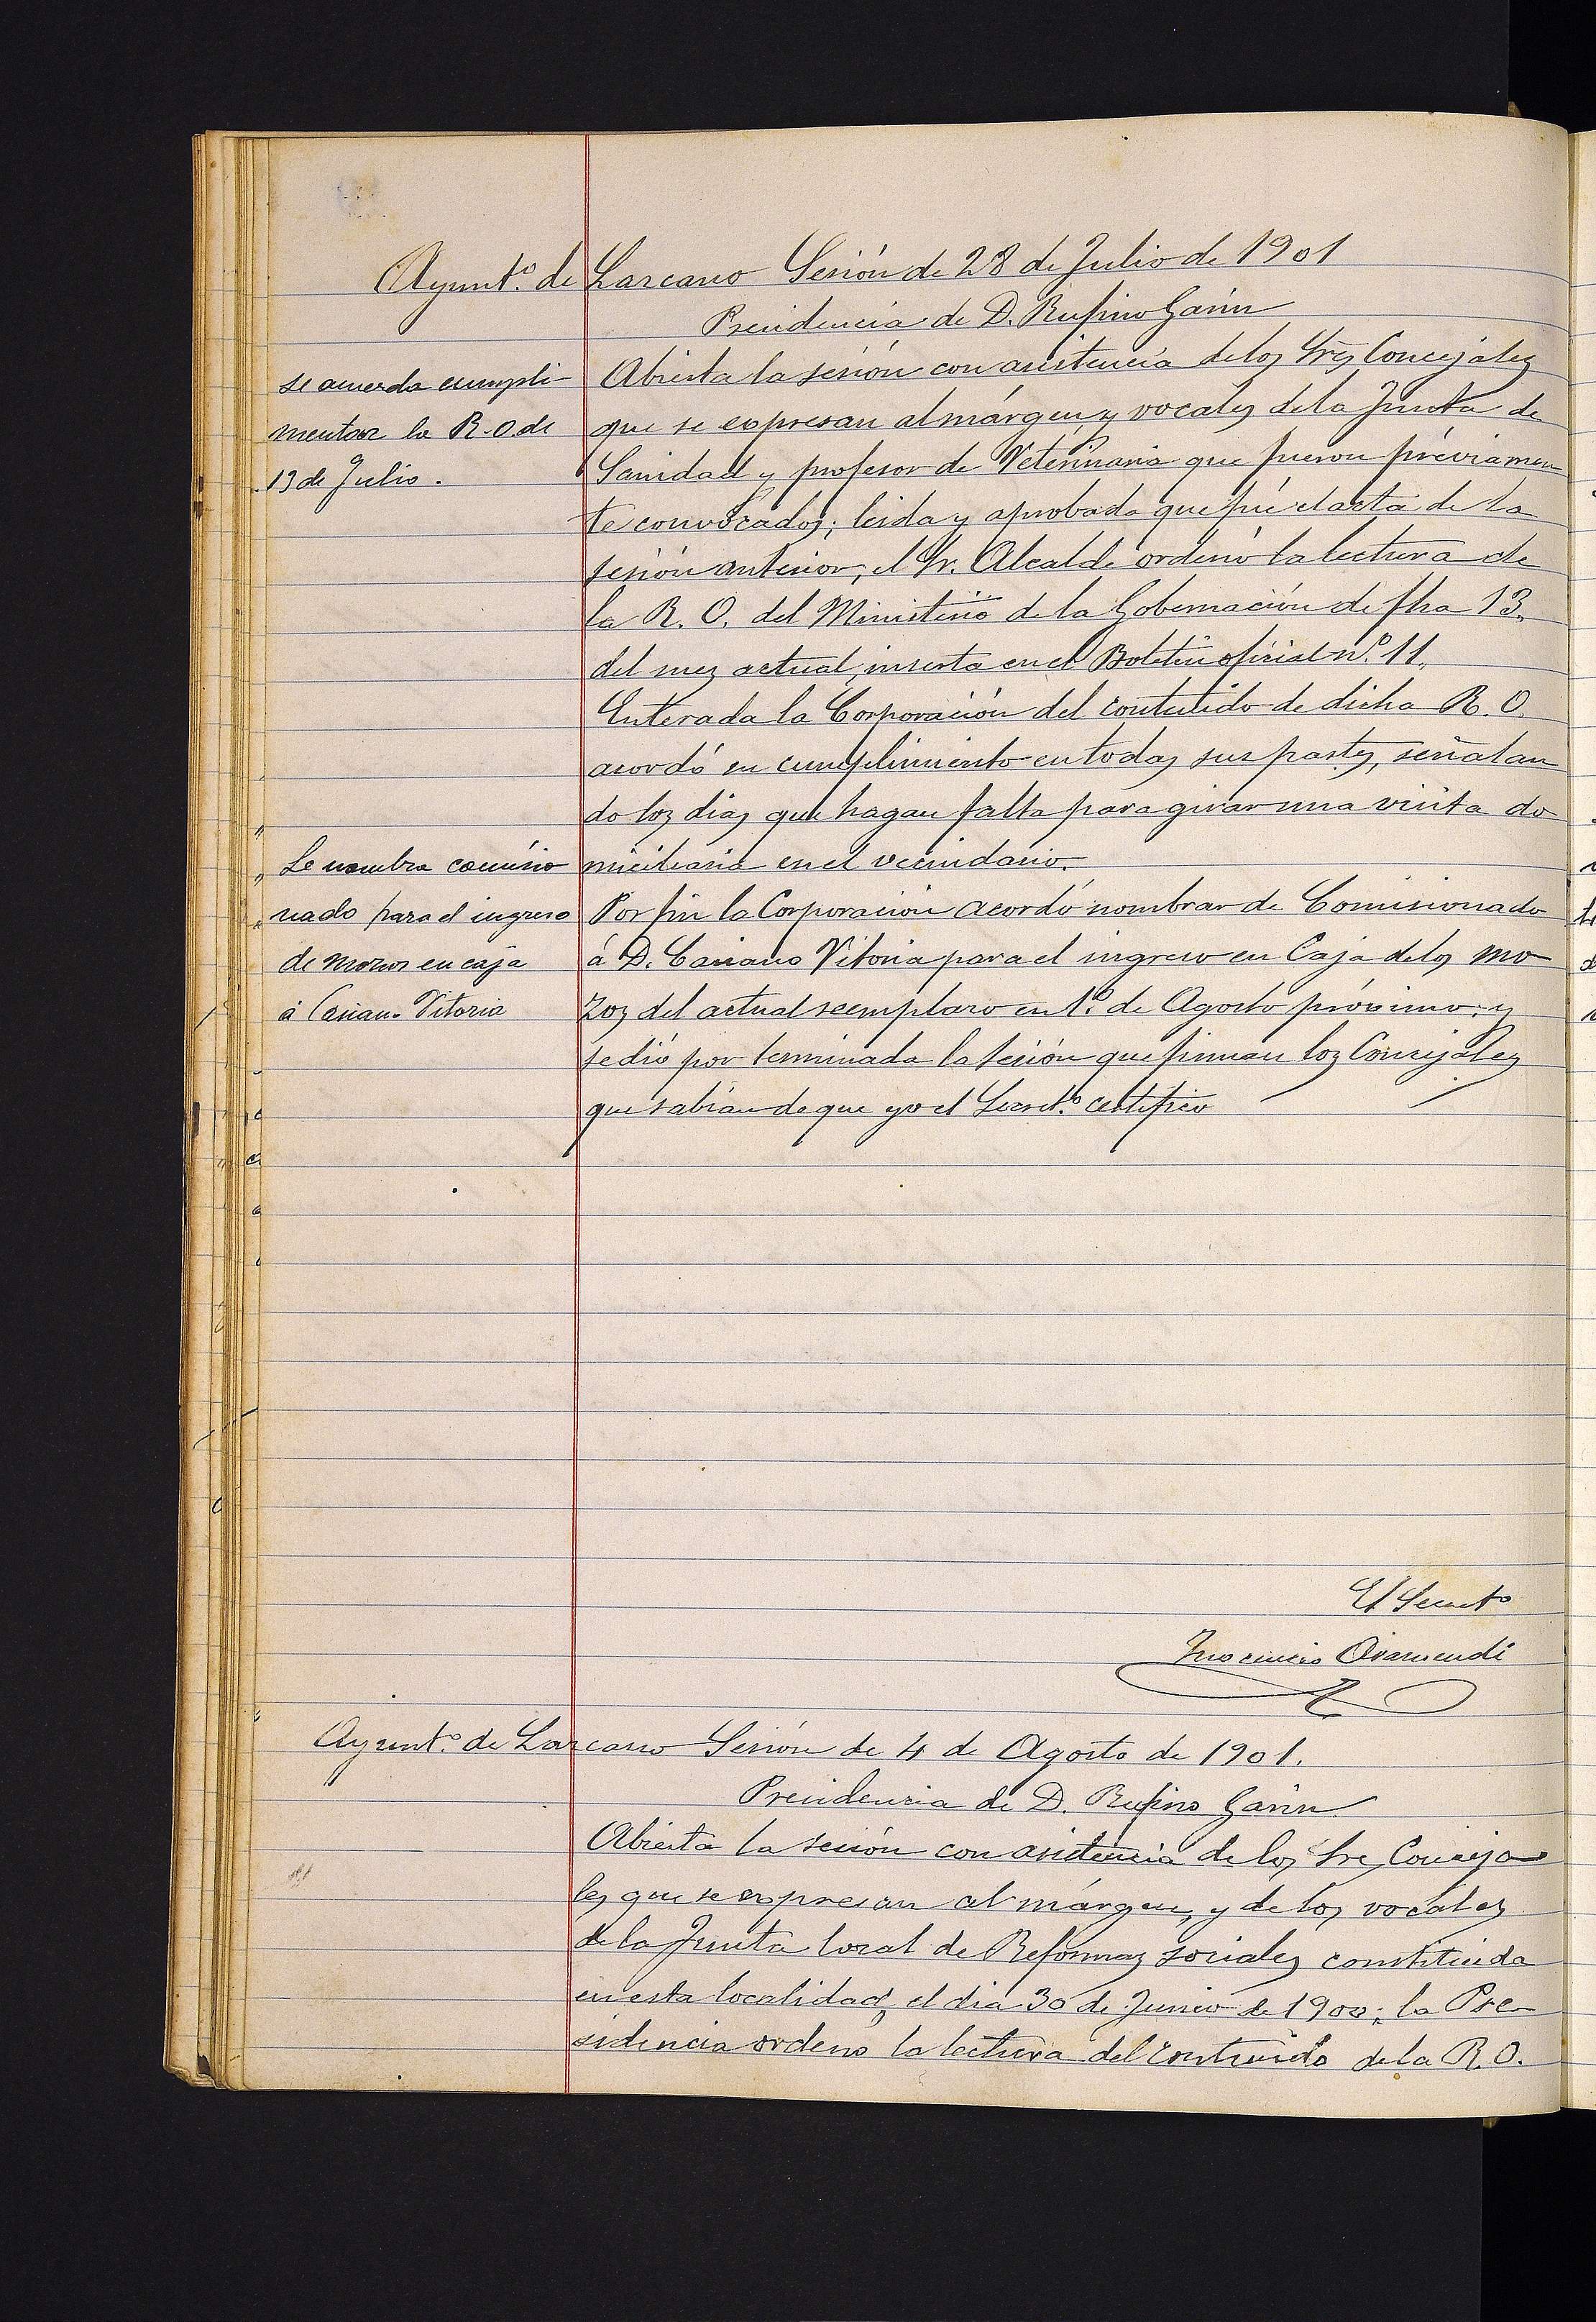 Ayunt.º de Lazcano Sesión de 28 de Julio de 1901
Presidencia de D. Rufino Garin
se acuerda cumpli-
mentar la R.O. de
13 de Julio.
Abierta la sesión con asistencia de los Sres Concejales
que se expresan al márgen, y vocales de la Junta de
Sanidad y profesor de Veterinaria que fueron préviamen
te convocados; leida y aprobada que fué el acta de la
sesión anterior, el Sr. Alcalde ordenó la lectura de
la R. O. del Ministerio de la Gobernación de fha 13.
del mes actual, inserta en el Boletin oficial nº. 11.
Enterada la Corporación del contenido de dicha R. O.
acordó su cumplimiento en todas sus partes, señalan
do los dias que hagan falta para girar una visita do
miciliaria en el vecindario.
Se nombra comisio
nado para el ingreso
de mozos en caja
á Casiano Vitoria
Por fin la Corporación acordó nombrar de Comisionado
á D. Casiano Vitoria para el ingreso en Caja de los mo
zos del actual reemplazo en 1.º de Agosto próximo; y
se dió por terminada la sesión que firman los Concejales
que sabían de que yo el Secret.º certifico
El Secreto
Inocencio Aramendi
Ayunt.º de Lazcano Sesión de 4 de Agosto de 1901.
Presidencia de D. Rufino Garin
Abierta la sesión con asistencia de los Sres Conceja
les que se expresan al márgen, y de los vocales
de la Junta local de Reformas sociales constituida
en esta localidad, el dia 30 de Junio de 1900; la Pre-
sidencia ordeno la lectura del contenido de la R.O.